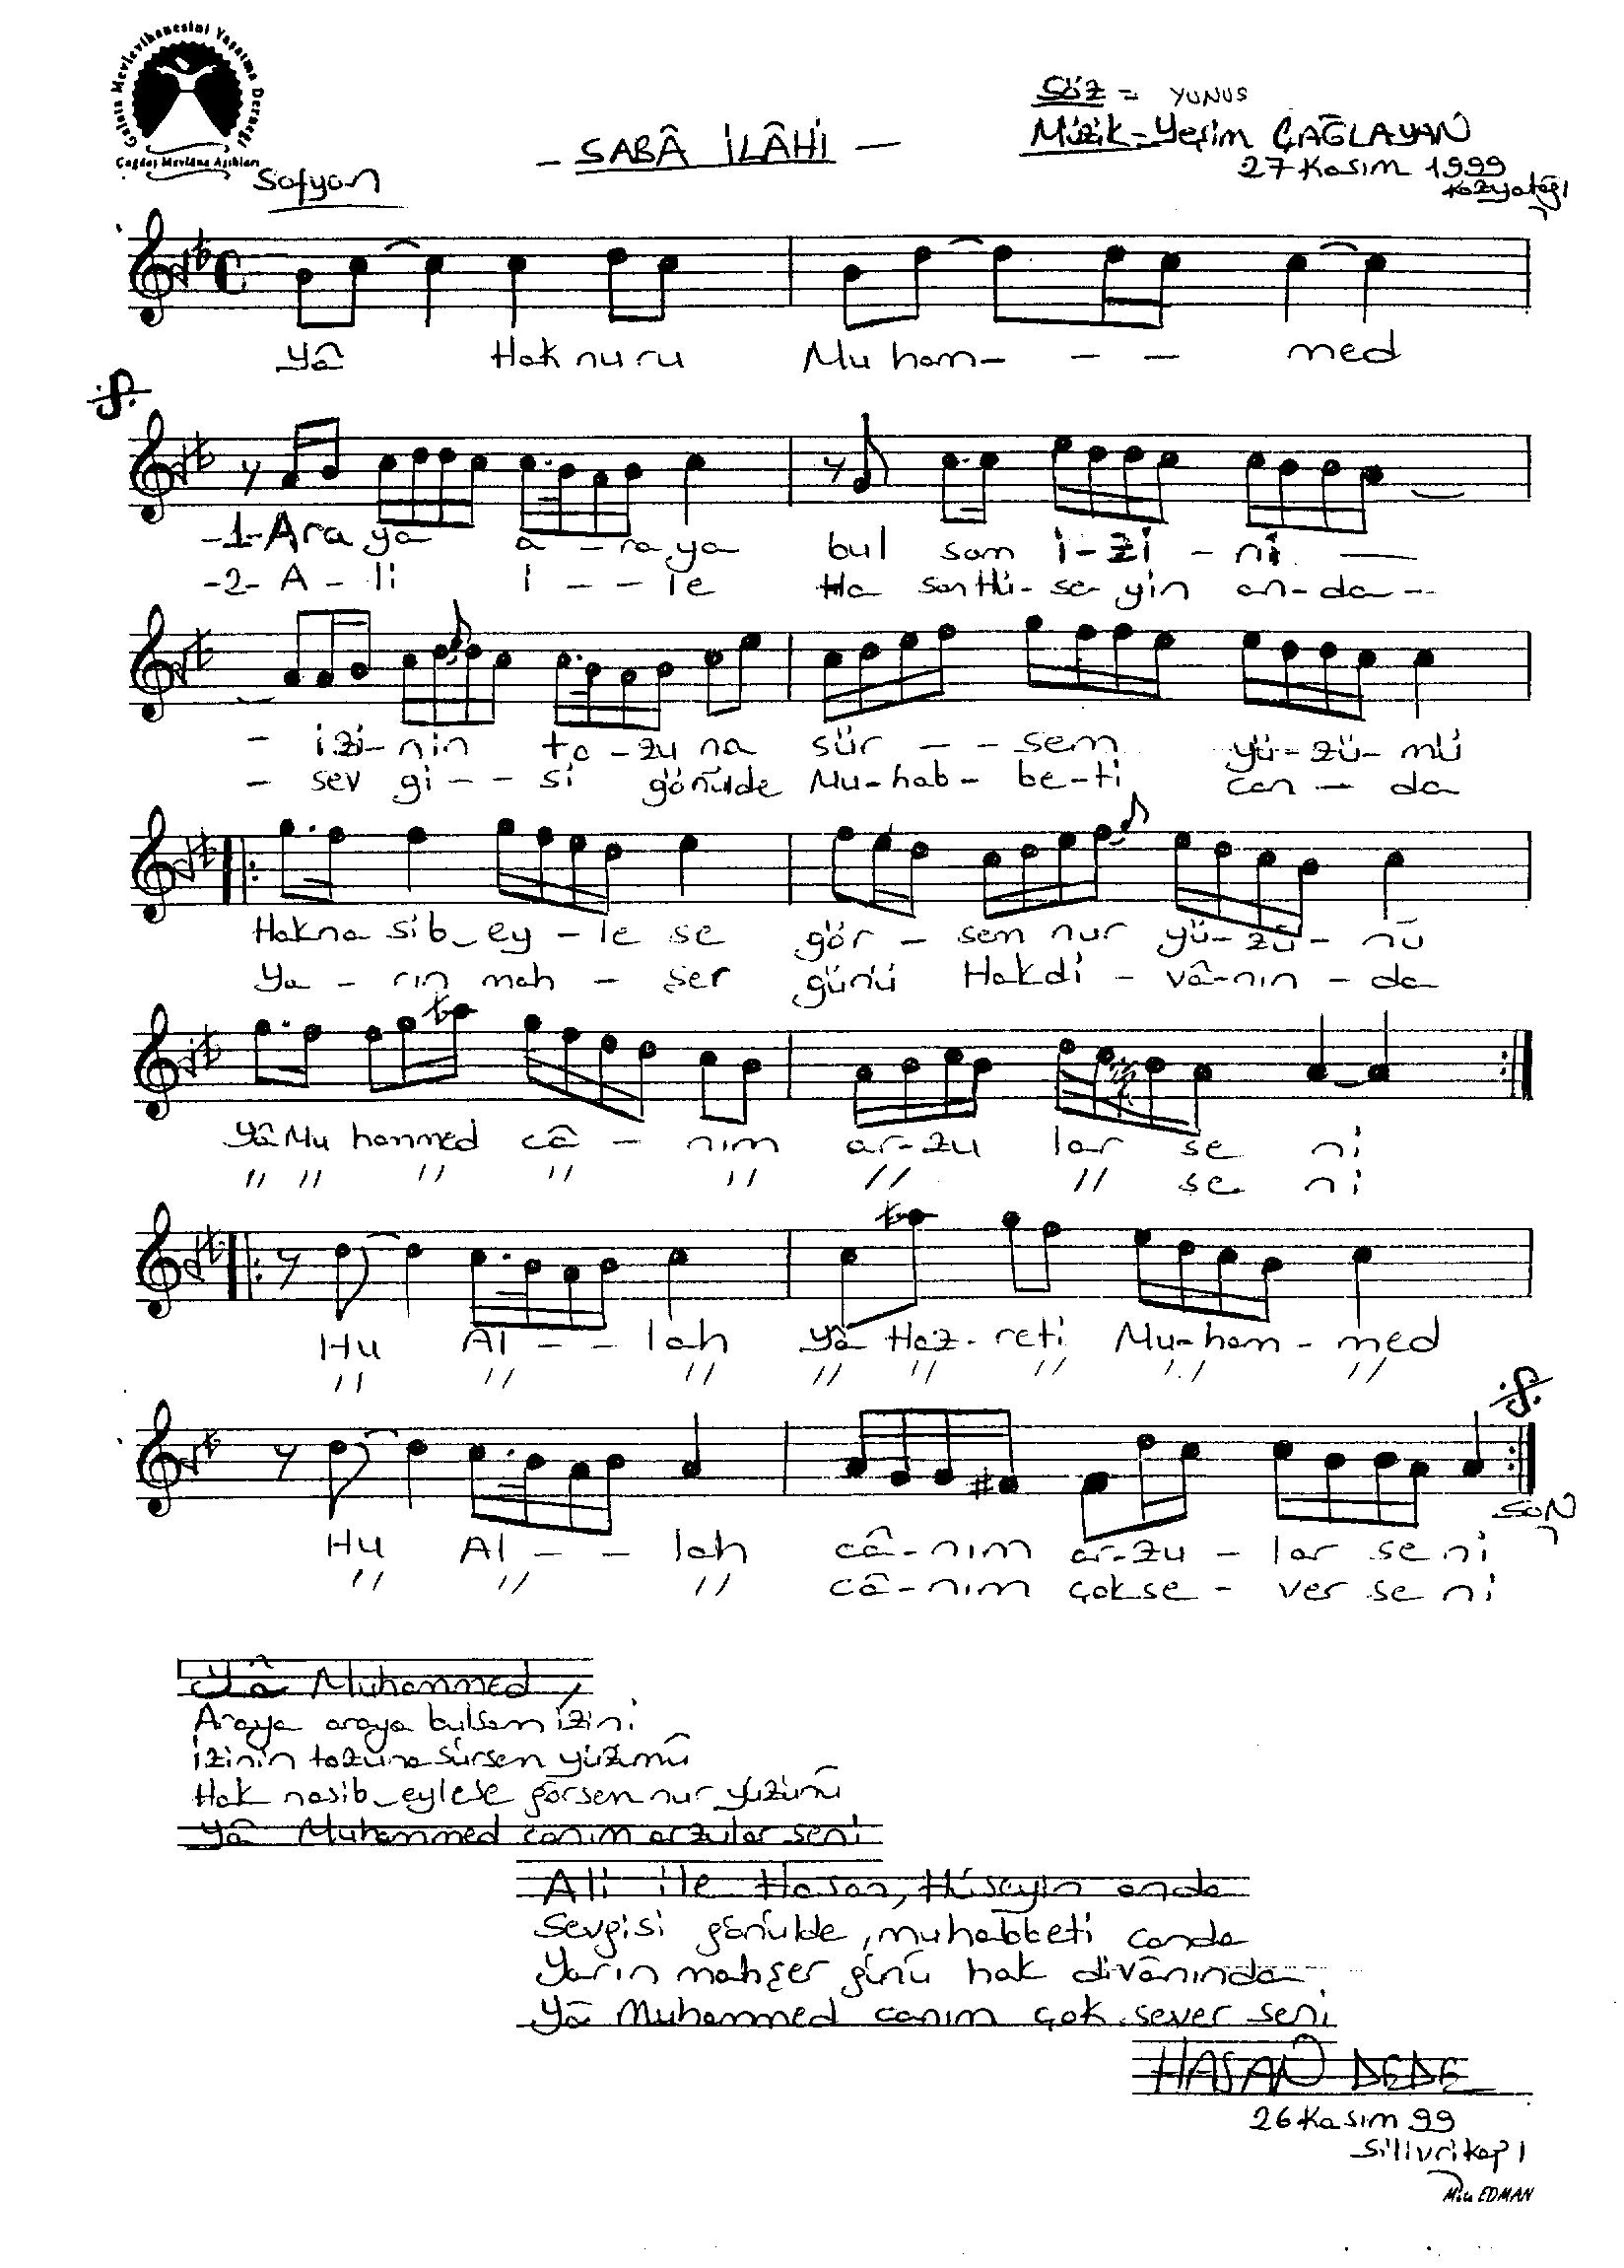 Galata Mevlevihanesini Yaşatma Derneği
Çağdaş Mevlâna Aşıkları
Söz = YUNUS
- SABÂ İLÂHİ -
Müzik - Yeşim ÇAĞLAYAN
27 Kasım 1999
Kozyatağı
Sofyan
Yâ Hak nu ru Mu ham- - - med
-1- Ara ya a - ra ya bul sam i - zi - ni —
-2- A - li i - - le Ha san Hü - se - yin an - da - -
- izi - nin to - zu na sür - - sem yü - zü - mü
- sev gi - - si gönülde Mu - hab - be - ti can - da
Hak na sib_ey - le se gör - sem nur yü - zü - nü
Ya - rın mah - şer günü Hak di - vâ - nın - da
Yâ Mu hammed câ - nım ar - zu lar se ni
" " " " " " " se ni
Hu Al - - lah Yâ Haz - reti Mu - ham - med
" " " " " " " "
Hu Al - - lah câ - nım ar - zu - lar se ni
" " " câ - nım çok se - ver se ni
SON
Yâ Muhammed,
Araya araya bulsam izini
İzinin tozuna sürsem yüzümü
Hak nasib_eylese görsem nur yüzünü
Yâ Muhammed canım arzular seni
Ali ile Hasan, Hüseyin anda
Sevgisi gönülde, muhabbeti canda
Yarın mahşer günü hak dîvânında
Yâ Muhammed canım çok sever seni
HASAN DEDE
26 Kasım 99
Silivrikapı
EDMAN